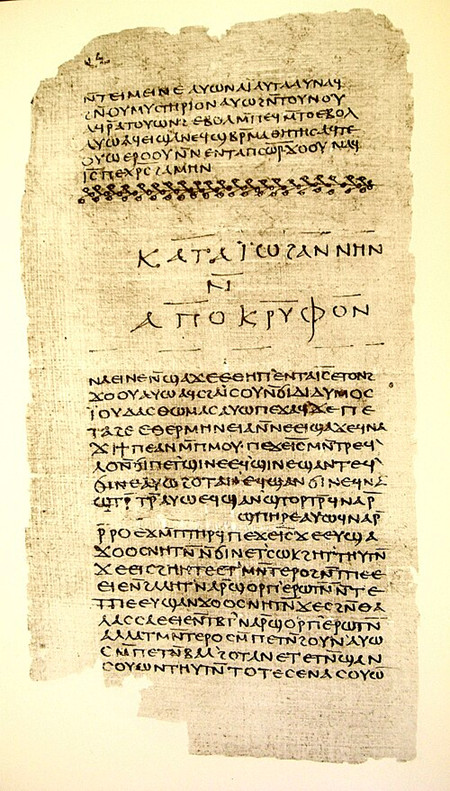 ⲛ̄ⲧⲉⲓⲙⲉⲓⲛⲉ ⲁⲩⲱ ⲛⲁⲓ̈ ⲁⲩⲧⲁⲁⲩ ⲛⲁϥ
ϩⲛ̄ⲛⲟⲩⲙⲩⲥⲧⲏⲣⲓⲟⲛ ⲁⲩⲱ ϩⲛ̄ⲧⲟⲩⲛⲟⲩ
ⲁϥⲣ̄ⲁⲧⲟⲩⲱⲛϩ ⲉⲃⲟⲗ ⲙ̄ⲡⲉϥⲙ̄ⲧⲟ ⲉⲃⲟⲗ
ⲁⲩⲱ ⲁϥⲉⲓ ϣⲁ ⲛⲉϥϣⲃⲣ̄ⲙⲁⲑⲏⲧⲏⲥ ⲁϥⲧⲉ
ⲟⲩⲱ ⲉⲣⲟⲟⲩ ⲛ̄ⲛⲉⲛⲧⲁⲡⲥⲱⲣ ϫⲟⲟⲩ ⲛⲁϥ
ⲓ̄ⲥ̄ ⲡⲉⲭⲣ̄ⲥ̄ ϩⲁⲙⲏⲛ
ⲕⲁⲧⲁ ⲓ̈ⲱϩⲁⲛⲛⲏⲛ
ⲛ̄
ⲁⲡⲟⲕⲣⲩⲫⲟⲛ
ⲛⲁⲉⲓ ⲛⲉ ⲛ̄ϣⲁϫⲉ ⲉⲑⲏⲡ ⲉⲛⲧⲁⲓ̄ⲥ̄ ⲉⲧⲟⲛϩ
ϫⲟⲟⲩ ⲁⲩⲱ ⲁϥⲥϩⲁⲓ̈ⲥⲟⲩ ⲛ̄ϭⲓ ⲇⲓⲇⲩⲙⲟⲥ
ⲓ̈ⲟⲩⲇⲁⲥ ⲑⲱⲙⲁⲥ ⲁⲩⲱ ⲡⲉϫⲁϥ ϫⲉ ⲡⲉ
ⲧⲁϩⲉ ⲉⲑⲉⲣⲙⲏⲛⲉⲓⲁ ⲛ̄ⲛⲉⲉⲓϣⲁϫⲉ ϥⲛⲁ
ϫⲓ ϯⲡⲉ ⲁⲛ ⲙ̄ⲡⲙⲟⲩ ⲡⲉϫⲉ ⲓ̄ⲥ̄ ⲙⲛ̄ⲧⲣⲉϥ
ⲗⲟ ⲛ̄ϭⲓ ⲡⲉⲧϣⲓⲛⲉ ⲉϥϣⲓⲛⲉ ϣⲁⲛⲧⲉϥ
ϭⲓⲛⲉ ⲁⲩⲱ ϩⲟⲧⲁⲛ ⲉϥϣⲁⲛϭⲓⲛⲉ ϥⲛⲁ
ϣⲧⲣ̄ⲧⲣ̄ ⲁⲩⲱ ⲉϥϣⲁⲛϣⲧⲟⲣⲧⲣ̄ ϥⲛⲁⲣ̄
ϣⲡⲏⲣⲉ ⲁⲩⲱ ϥⲛⲁⲣ̄
ⲣ̄ⲣⲟ ⲉϫⲙ̄ ⲡⲧⲏⲣϥ ⲡⲉϫⲉ ⲓ̄ⲥ̄ ϫⲉ ⲉⲩϣⲁ
ϫⲟⲟⲥ ⲛⲏⲧⲛ̄ ⲛ̄ϭⲓ ⲛⲉⲧⲥⲱⲕ ϩⲏⲧ ⲑⲏⲩⲧⲛ̄
ϫⲉ ⲉⲓⲥϩⲏⲏⲧⲉ ⲉⲧⲙⲛ̄ⲧⲉⲣⲟ ϩⲛ̄ ⲧⲡⲉ ⲉ
ⲉⲓⲉ ⲛ̄ϩⲁⲗⲏⲧ ⲛⲁⲣ̄ ϣⲟⲣⲡ ⲉⲣⲱⲧⲛ̄ ⲛ̄ⲧⲉ
ⲧⲡⲉ ⲉⲩϣⲁⲛϫⲟⲟⲥ ⲛⲏⲧⲛ̄ ϫⲉ ⲥϩⲛ̄ ⲑⲁ
ⲗⲁⲥⲥⲁ ⲉⲉⲓⲉ ⲛ̄ⲧⲃⲧ ⲛⲁⲣ̄ ϣⲟⲣⲡ ⲉⲣⲱⲧⲛ̄
ⲁⲗⲗⲁ ⲧⲙⲛ̄ⲧⲉⲣⲟ ⲥⲙ̄ⲡⲉⲧⲛ̄ϩⲟⲩⲛ ⲁⲩⲱ
ⲥⲙ̄ⲡⲉⲧⲛ̄ⲃⲁⲗ ϩⲟⲧⲁⲛ ⲉⲧⲉⲧⲛ̄ϣⲁⲛ
ⲥⲟⲩⲱⲛ ⲧⲏⲩⲧⲛ̄ ⲧⲟⲧⲉ ⲥⲉⲛⲁⲥⲟⲩⲱ